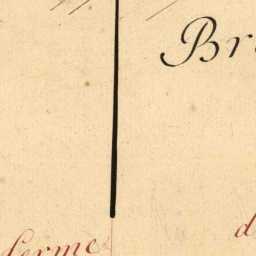 Br
d
ferme